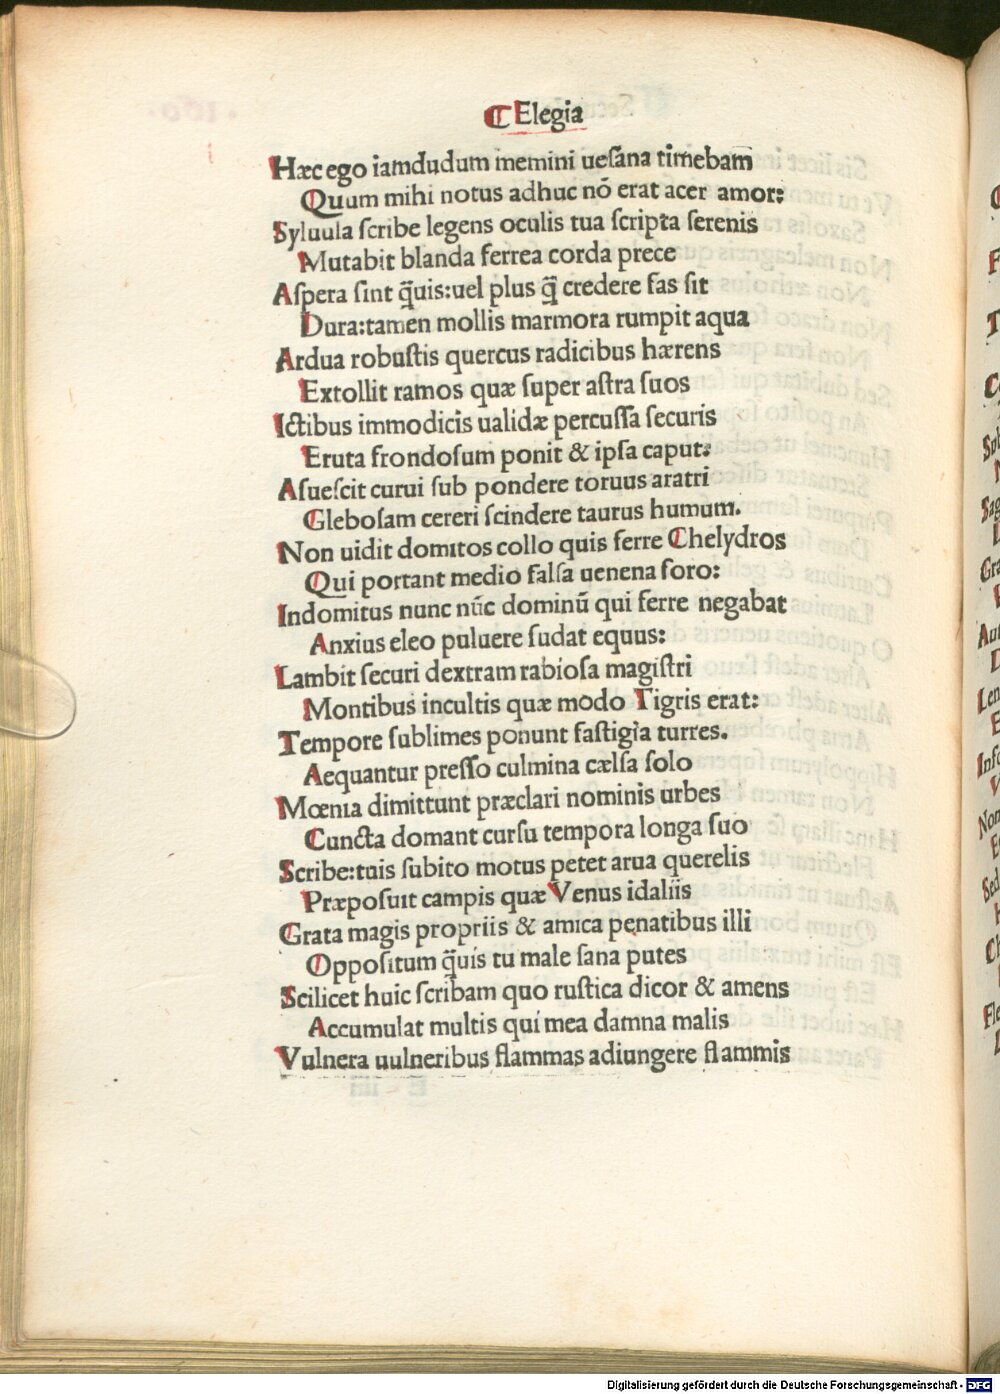 ⸿ Elegia
Hæc ego iamdudum memini ueſana timebam
Quum mihi notus adhuc nō erat acer amor:
Syluula ſcribe legens oculis tua ſcripta ſerenis
Mutabit blanda ferrea corda prece
Aſpera ſint q̄uis:uel plus q̄ credere fas ſit
Dura:tamen mollis marmora rumpit aqua
Ardua robuſtis quercus radicibus hærens
Extollit ramos quæ ſuper aſtra ſuos
Ictibus immodicis ualidæ percuſſa ſecuris
Eruta frondoſum ponit & ipſa caput:
Aſueſcit curui ſub pondere toruus aratri
Gleboſam cereri ſcindere taurus humum.
Non uidit domitos collo quis ferre Chelydros
Qui portant medio falſa uenena foro:
Indomitus nunc nūc dominū qui ferre negabat
Anxius eleo puluere ſudat equus:
Lambit ſecuri dextram rabioſa magiſtri
Montibus incultis quæ modo Tigris erat:
Tempore ſublimes ponunt faſtigia turres.
Aequantur preſſo culmina cælſa ſolo
Mœnia dimittunt præclari nominis urbes
Cuncta domant curſu tempora longa ſuo
Scribe:tuis ſubito motus petet arua querelis
Præpoſuit campis quæ Venus idaliis
Grata magis propriis & amica penatibus illi
Oppoſitum q̄uis tu male ſana putes
Scilicet huic ſcribam quo ruſtica dicor & amens
Accumulat multis qui mea damna malis
Vulnera uulneribus flammas adiungere flammis
Digitalisierung gefördert durch die Deutsche Forschungsgemeinschaft - DFG